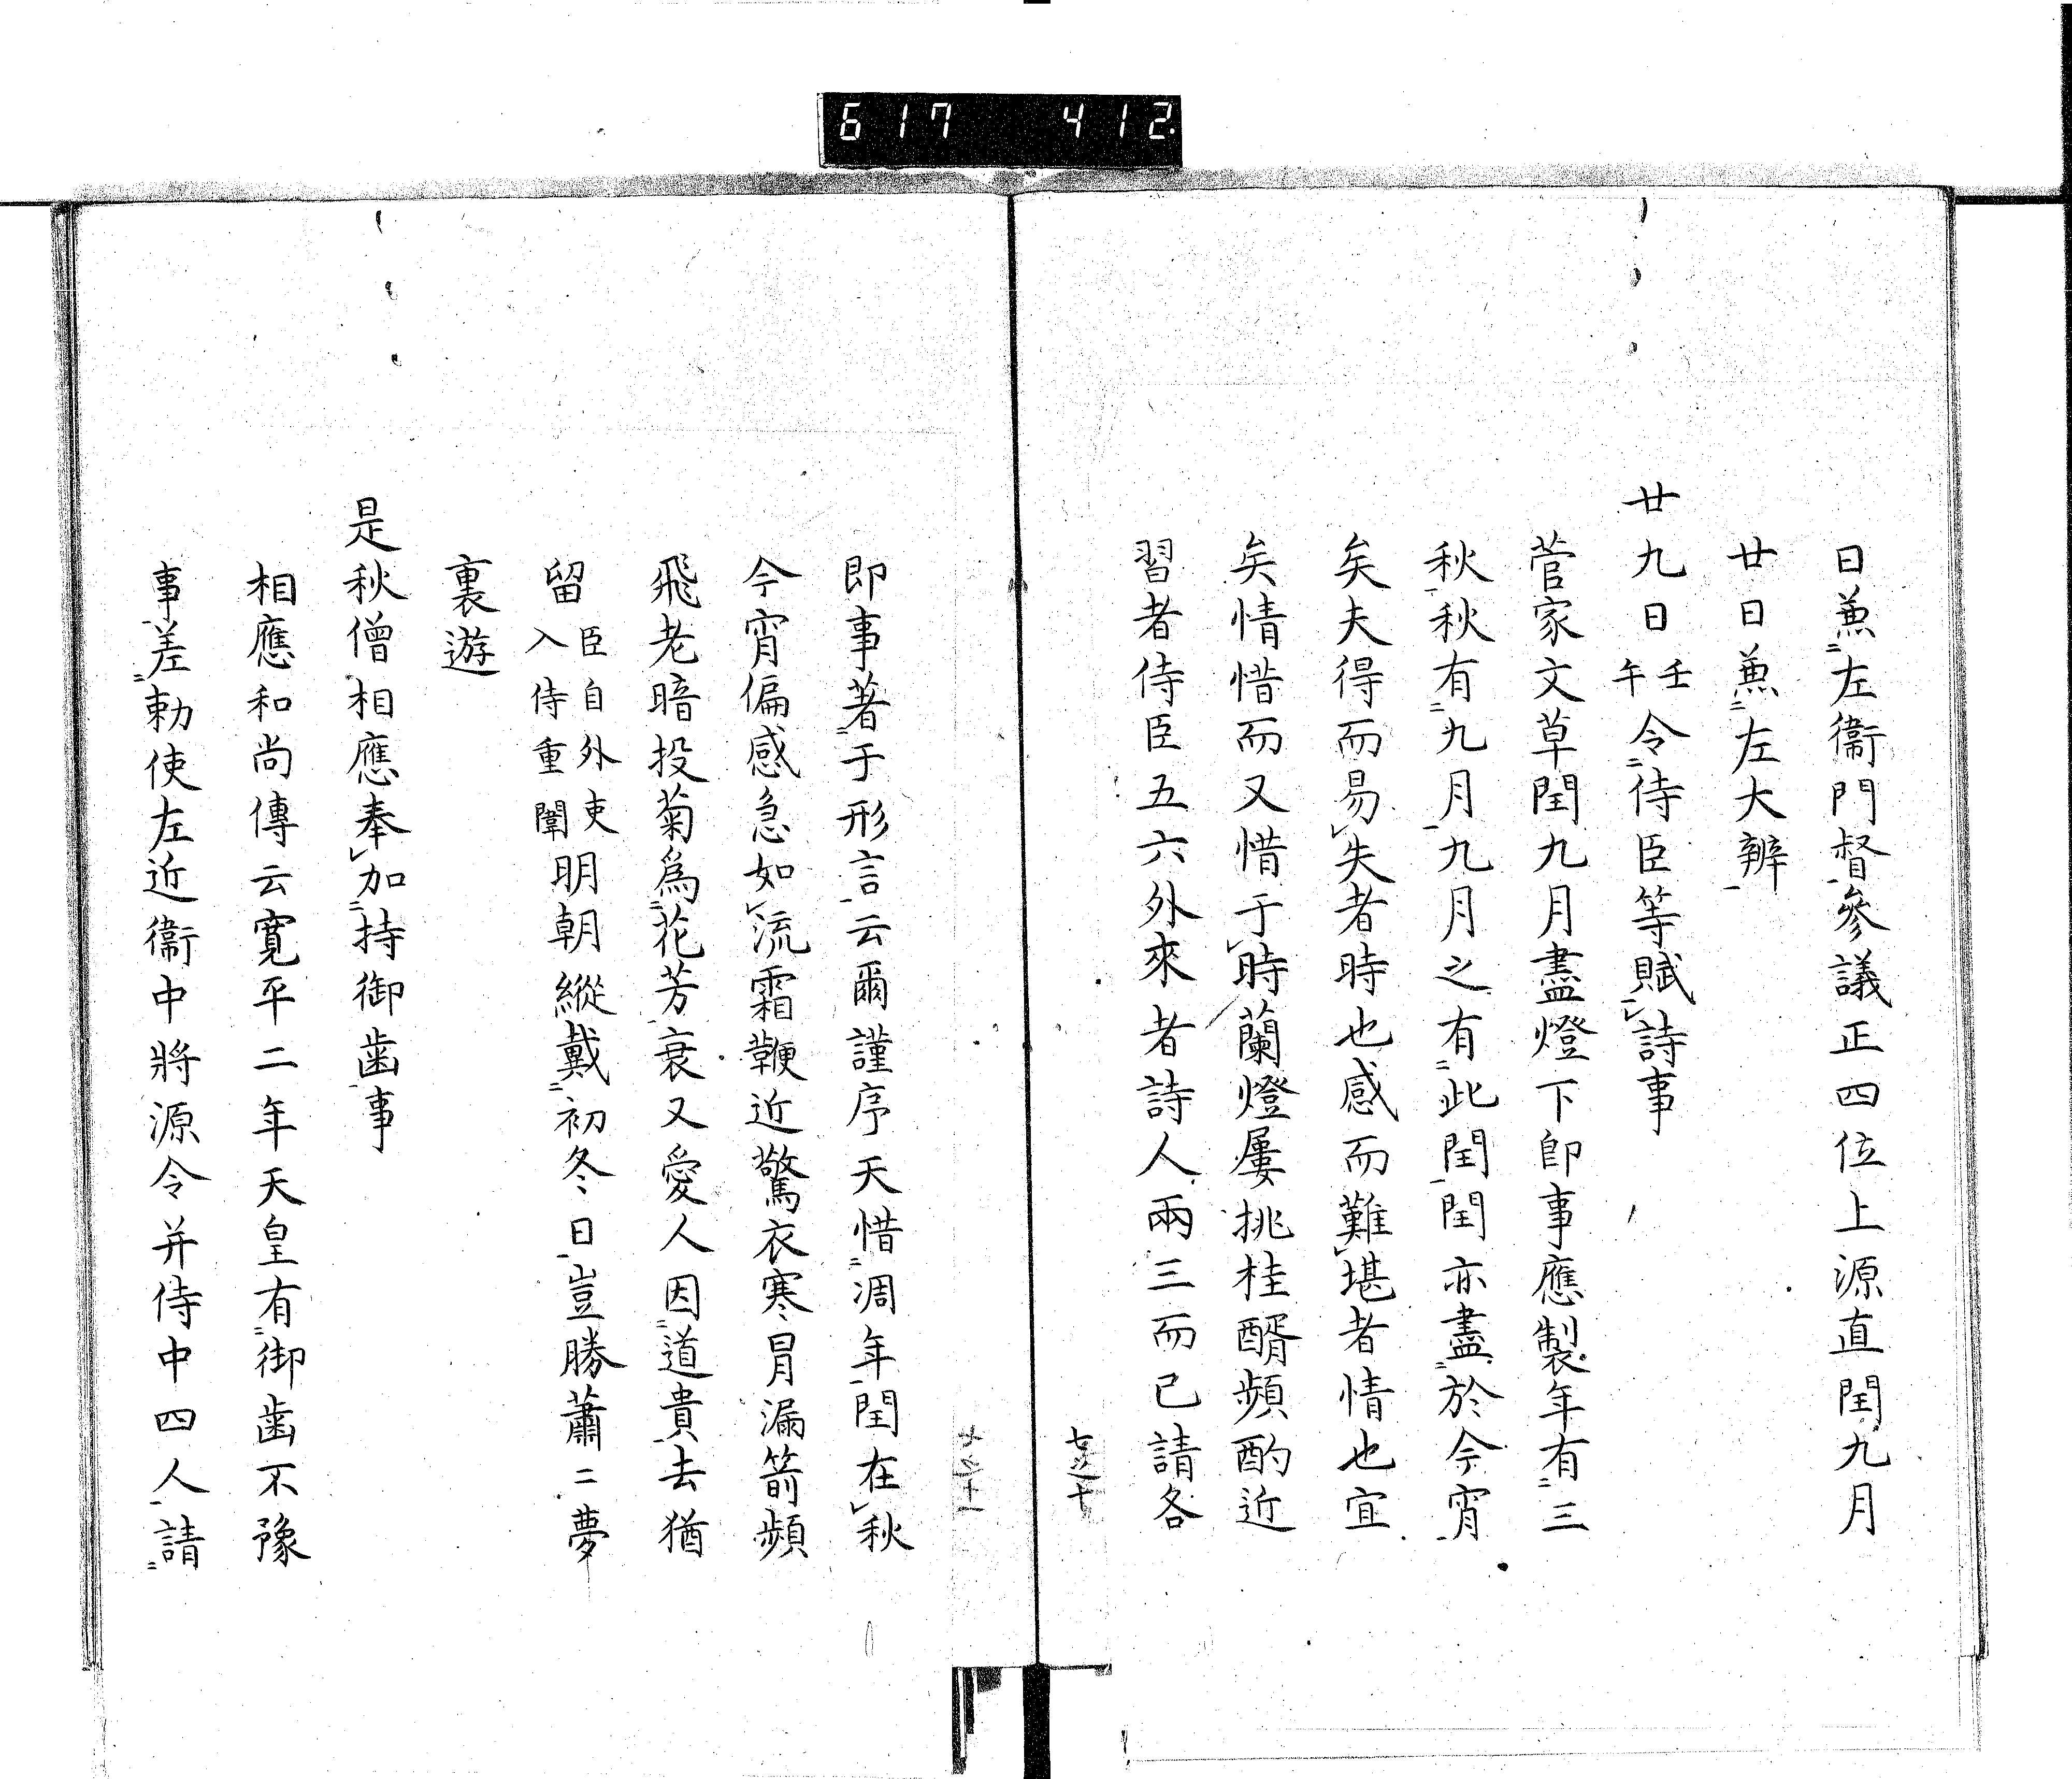 617 412.
日兼左衞門督參議正四位上源直閏九月
廿日兼左大辨
廿九日壬午令侍臣等賦詩事
菅家文草閏九月盡燈下即事應製年有三
秋秋有九月九月之有此閏閏亦盡於今宵
矣夫得而易失者時也感而難堪者情也宜
矣情惜而又惜于時蘭燈屢挑桂醑頻酌近
習者侍臣五六外來者詩人兩三而已請各
即事著于形言云爾謹序天惜凋年閏在秋
今宵偏感急如流霜鞭近驚衣寒冐漏箭頻
飛老暗投菊爲花芳衰又愛人因道貴去猶
留臣自外吏入侍重闈明朝縱戴初冬日豈勝蕭〻夢
裏遊
是秋僧相應奉加持御歯事
相應和尚傳云寛平二年天皇有御歯不豫
事差勅使左近衞中將源令并侍中四人請